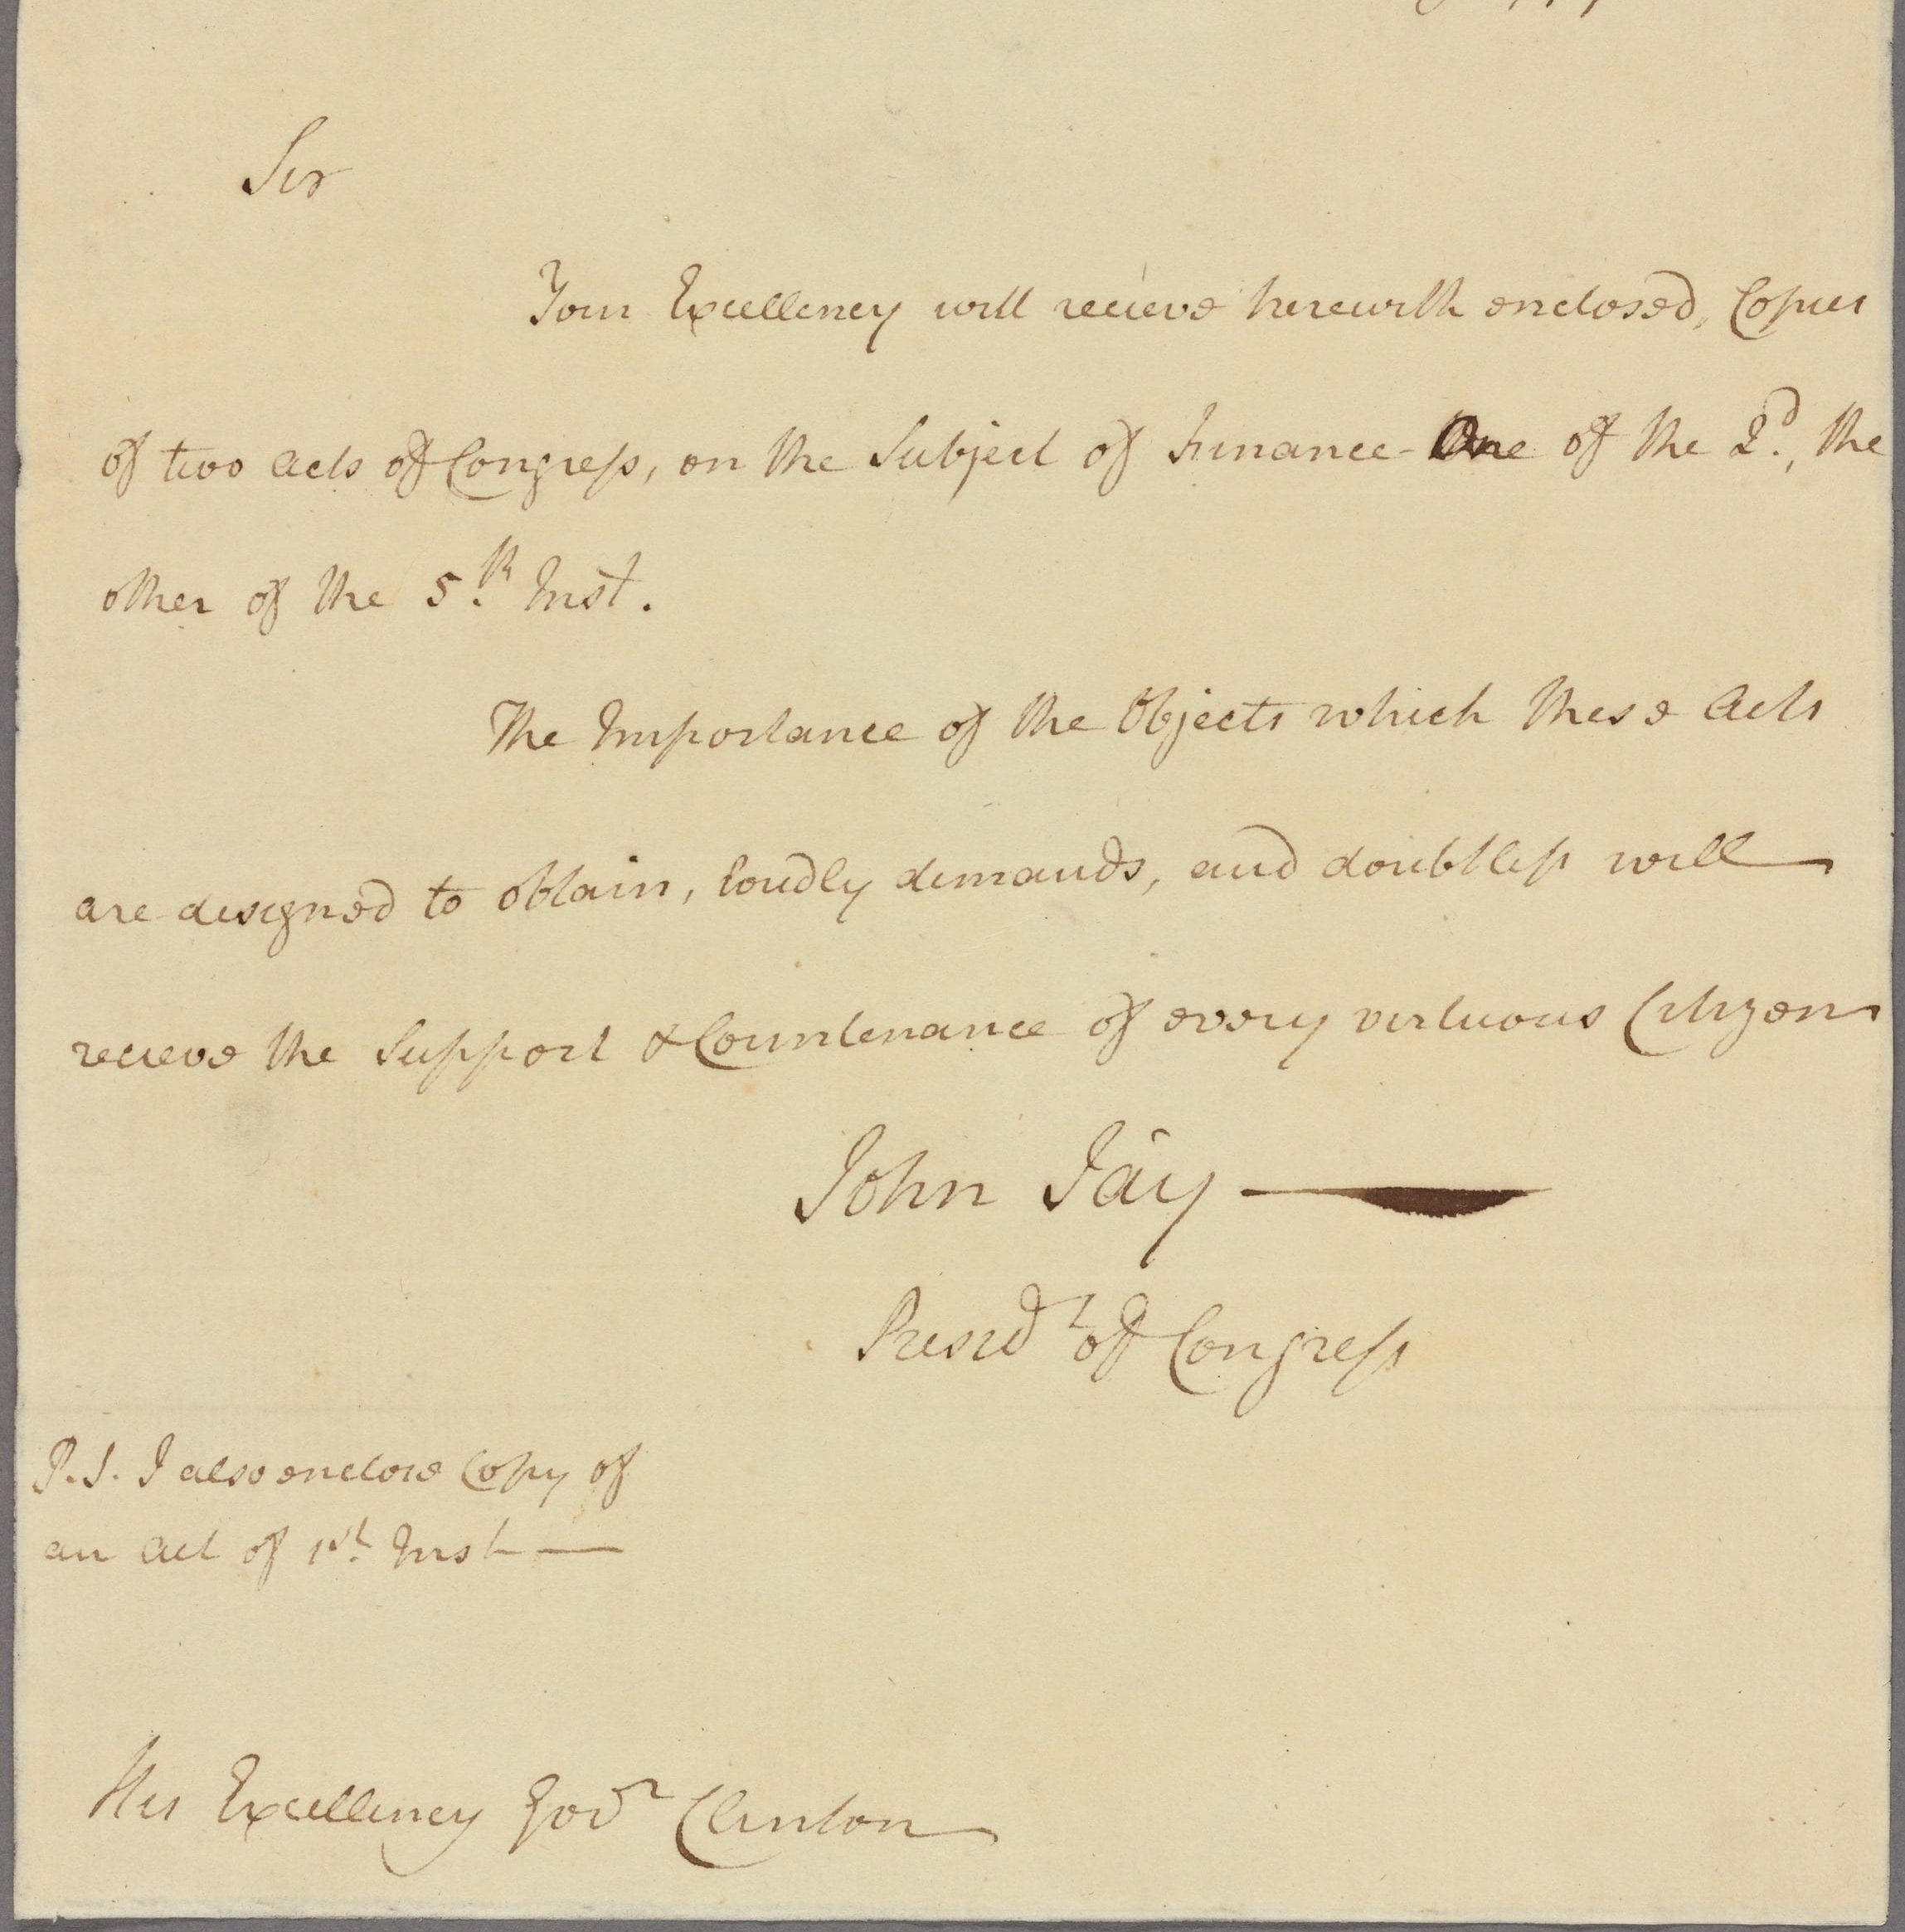 Sir
Your Excellency will recieve herewith enclosed, Copies
of two acts of Congress, on the Subject of Finance - One of the 2d., the
other of the 5.th Inst.
The Importance of the Objects which these Acts
are designed to obtain, loudly demands, and doubtless will
recieve the Support & Countenance of every virtuous Citizen
John Jay
Presidt of Congress
P.S. I also enclose Copy of
an act of 1st. Inst
His Excellency Govr Clinton